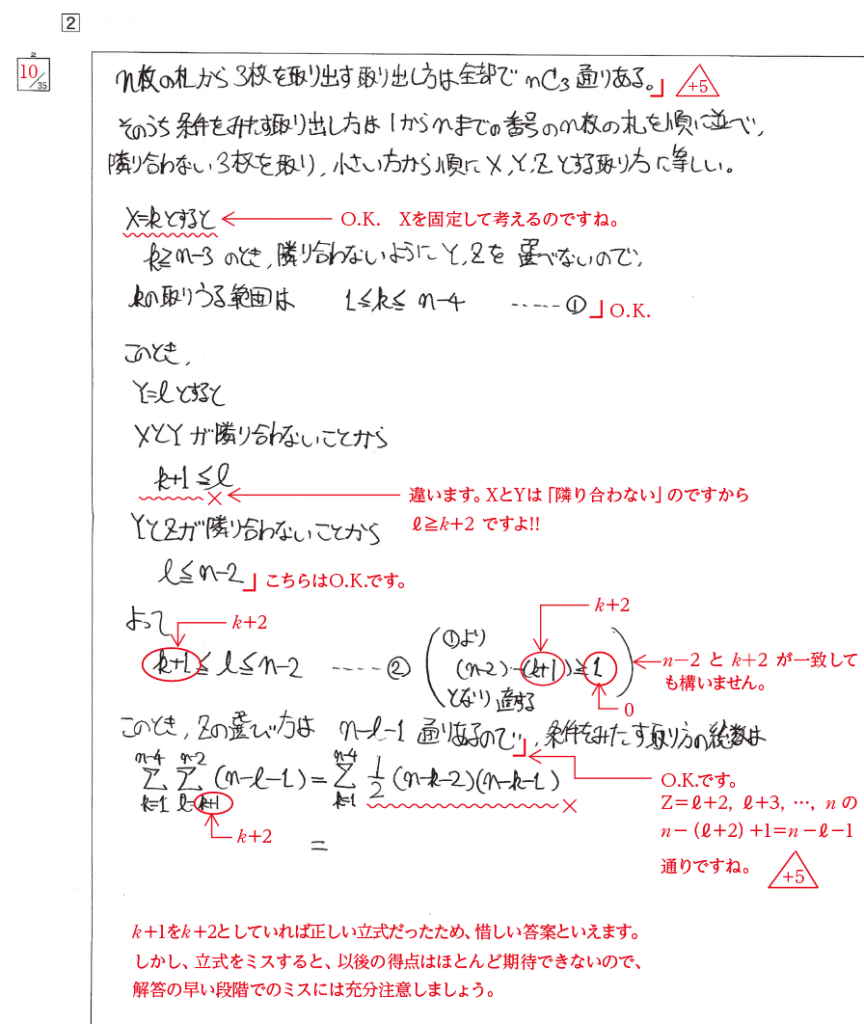 2
2
10/35
n枚の札から3枚を取り出す取り出し方は全部で nC3 通りある。」 +5
そのうち条件をみたす取り出し方は1からnまでの番号のn枚の札を順に並べ,
隣り合わない3枚を取り,小さい方から順にX,Y,Zとする取り方に等しい。
X=kとすると ← O.K. Xを固定して考えるのですね。
k≧n-3 のとき,隣り合わないようにY,Zを選べないので,
kの取りうる範囲は 1≦k≦n-4 ……① 」O.K.
このとき,
Y=lとすると
XとYが隣り合わないことから
k+1≦l × ← 違います。XとYは「隣り合わない」のですから
ℓ≧k+2 ですよ!!
YとZが隣り合わないことから
l≦n-2 」こちらはO.K.です。
よって k+2 k+2
k+1≦l≦n-2 ……② (①より (n-2)-(k+1)≧1 となり適する) ← n-2 と k+2 が一致して
も構いません。
0
このとき,Zの選び方は n-l-1 通りあるので」,条件をみたす取り方の総数は
Σ[k=1, n-4] Σ[l=k+1, n-2] (n-l-1) = Σ[k=1, n-4] 1/2 (n-k-2)(n-k-1) ×
O.K.です。
Z=ℓ+2, ℓ+3, …, n の
n-(ℓ+2)+1=n-ℓ-1
通りですね。 +5
k+2
=
k+1をk+2としていれば正しい立式だったため、惜しい答案といえます。
しかし、立式をミスすると、以後の得点はほとんど期待できないので、
解答の早い段階でのミスには充分注意しましょう。